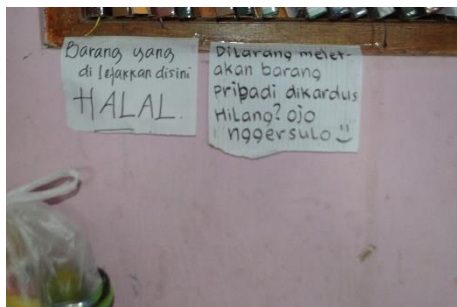 Barang yang
di letakkan disini
HALAL.
Dilarang melet-
akan barang
pribadi dikardus
Hilang? ojo
nggersulo